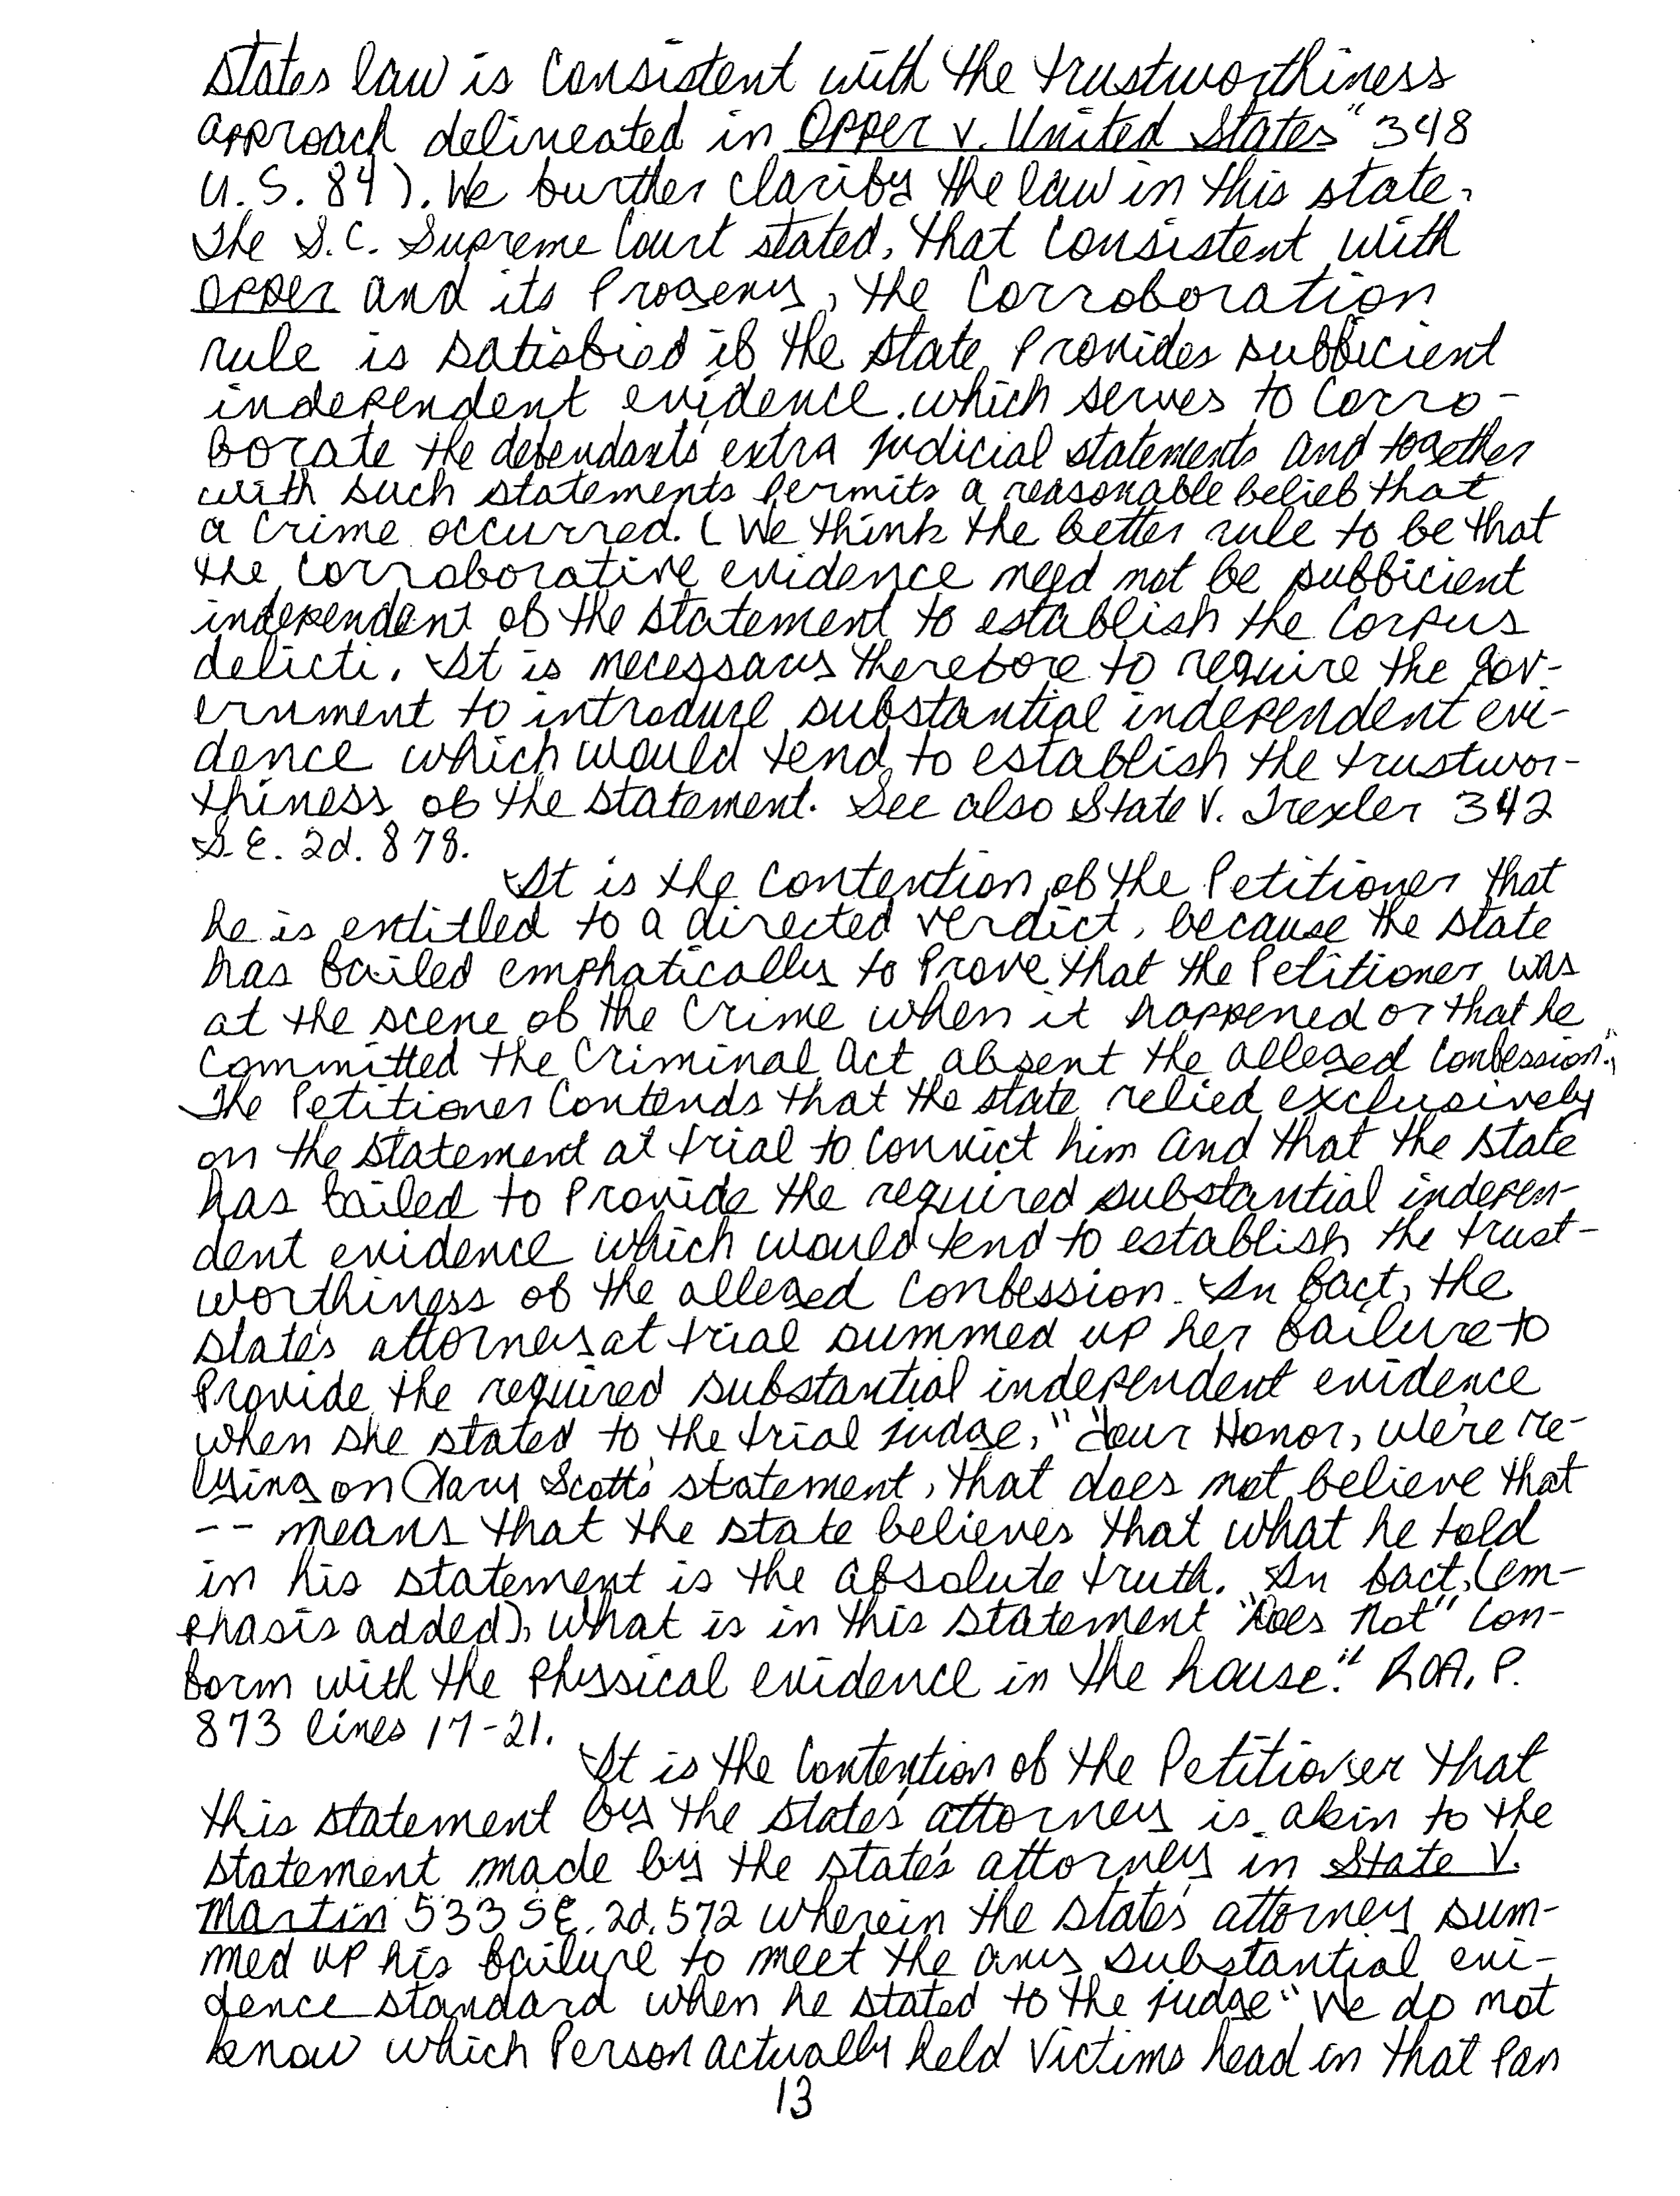 states law is consistent with the trustworthiness
approach delineated in Opper v. United States" 348
U.S. 84). We further clarify the law in this state.
The S.C. Supreme Court stated, that consistent with
Opper and its Progeny, the Corroboration
rule is satisfied if the state Provides sufficient
independent evidence which serves to Corro-
borate the defendants' extra judicial statements and together
with such statements Permits a reasonable belief that
a Crime occurred. (We think the better rule to be that
the Corroborative evidence need not be sufficient
independent of the statement to establish the Corpus
delicti. It is necessary therefore to require the Gov-
ernment to introduce substantial independent evi-
dence which would tend to establish the trustwor-
thiness of the statement. See also State V. Trexler 342
S.E. 2d. 878.
It is the Contention of the Petitioner that
he is entitled to a directed verdict, because the state
has failed emphatically to Prove that the Petitioner was
at the scene of the Crime when it happened or that he
Committed the Criminal Act absent the alleged Confession."
The Petitioner Contends that the state relied exclusively
on the statement at trial to Convict him and that the state
has failed to Provide the required substantial indepen-
dent evidence which would tend to establish the trust-
worthiness of the alleged Confession. In fact, the
state's attorney at trial summed up her failure to
Provide the required substantial independent evidence
when she stated to the trial judge, "Your Honor, we're re-
lying on Gary Scott's statement, that does not believe that
-- means that the state believes that what he told
in his statement is the absolute truth. In fact, (em-
phasis added), what is in this statement "Does Not" Con-
form with the Physical evidence in the house." ROA, P.
873 lines 17-21.
It is the Contention of the Petitioner that
this statement by the state's attorney is akin to the
statement made by the state's attorney in State V.
Martin 533 SE. 2d. 572 wherein the state's attorney sum-
med up his failure to meet the any substantial evi-
dence standard when he stated to the judge "We do not
know which Person actually held Victims head in that Pan
13